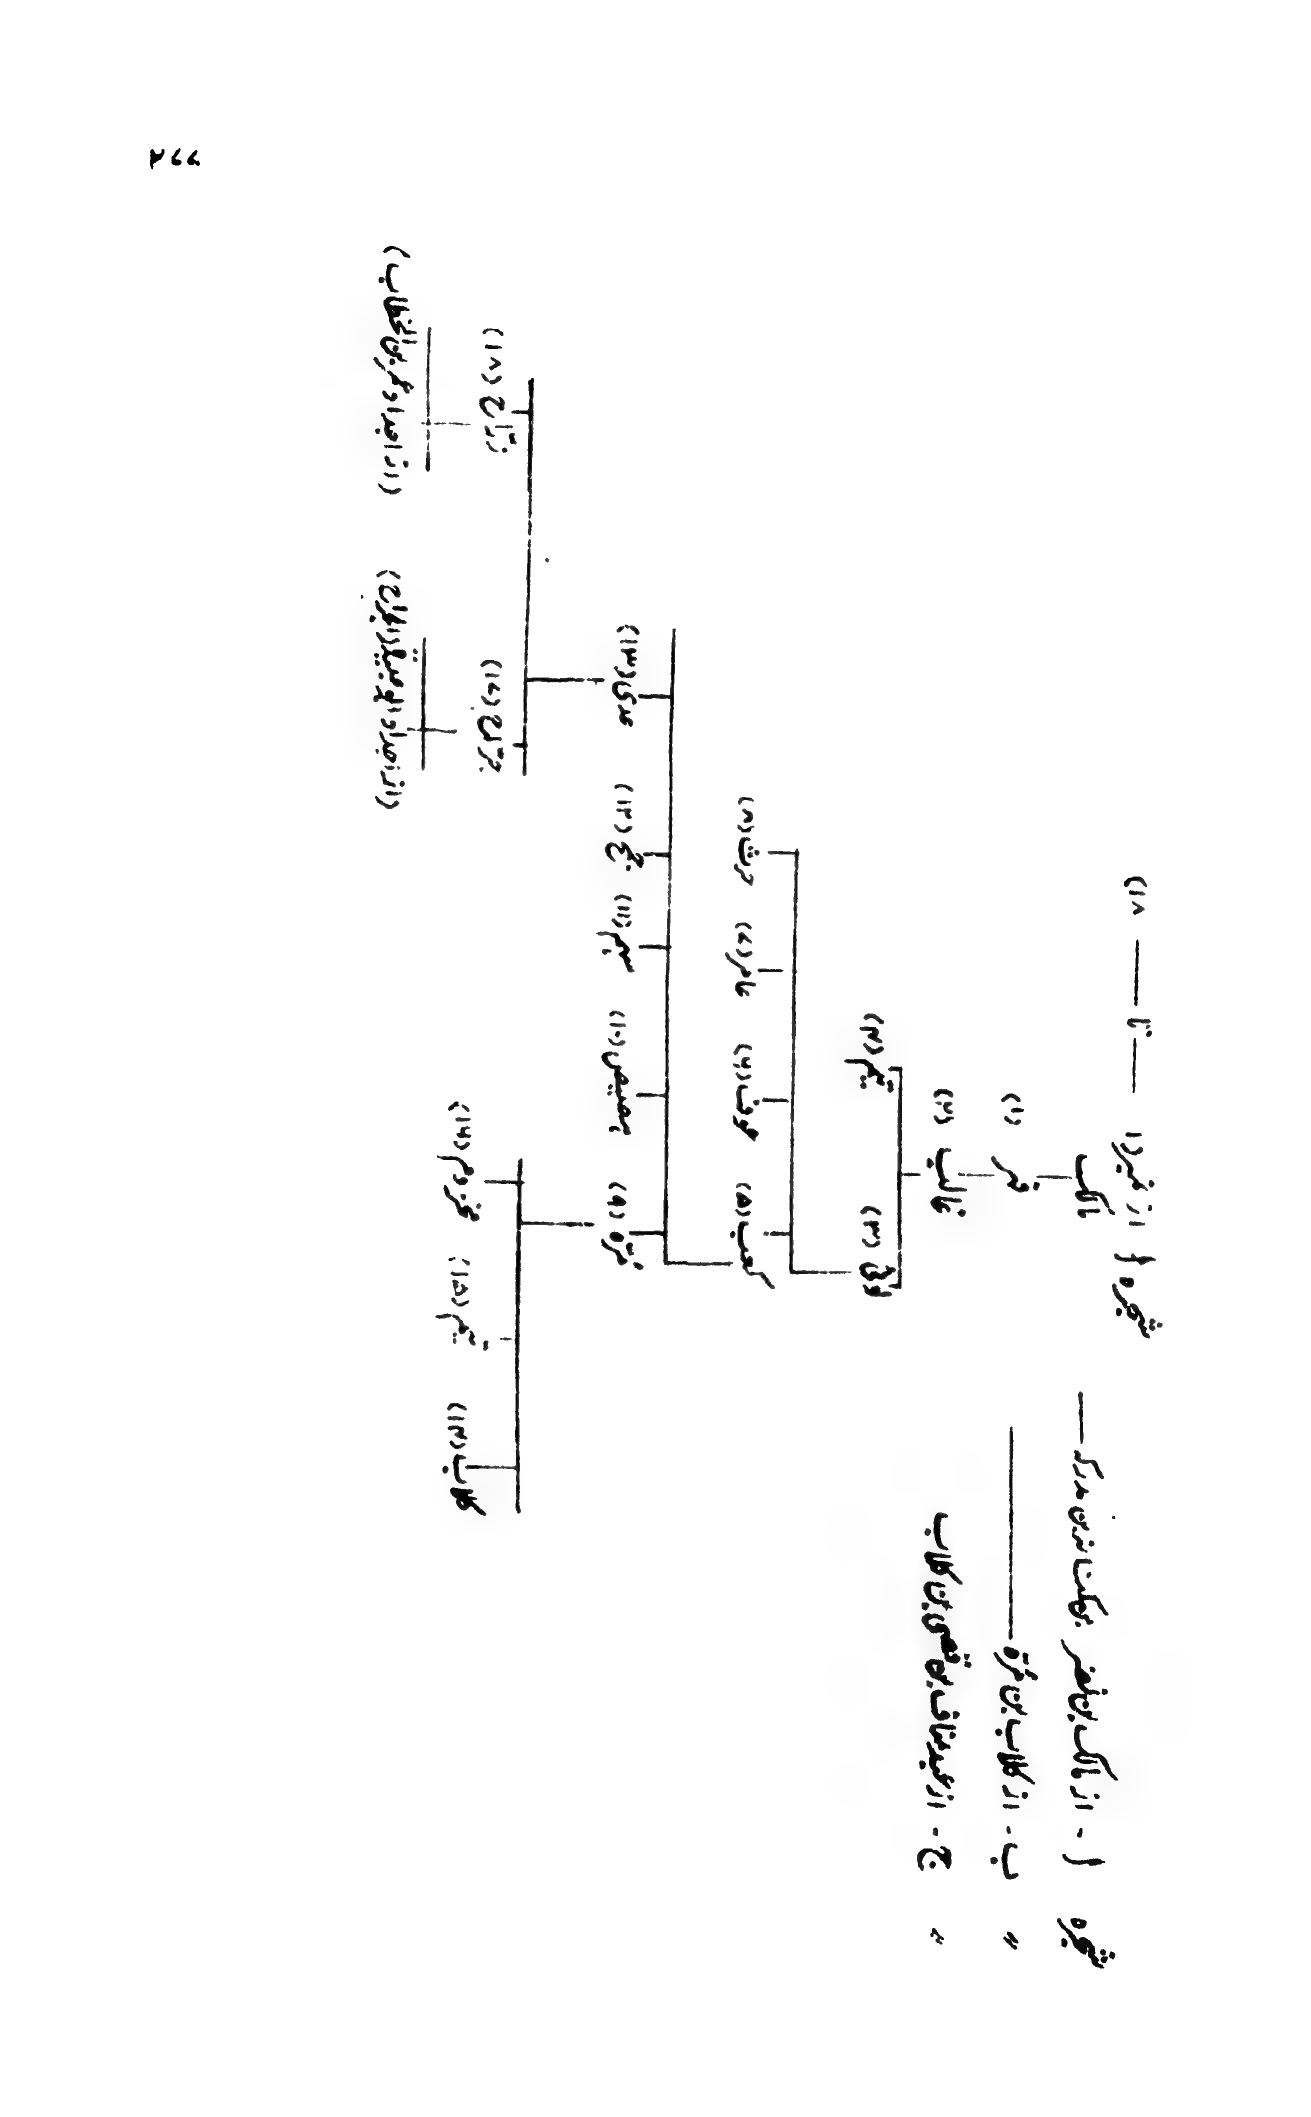 ۲۶۶
شجرہ ا۔ از مالک بن نضر بن کنانہ بن مدرکہ —
〃 ب۔ از کلاب بن مُرّۃ —
〃 ج۔ از عبد مناف بن قصّی بن کلاب
شجرہ ا از نمبر (۱ — تا — ۱۸)
مالک
فہر (۱)
غالب (۲)
لوئی (۳) تیم (۴)
کعب (۵) عوف (۶) عامر (۷) حرث (۸)
مُرّہ (۹) ہصیص (۱۰) سہم (۱۱) جمح (۱۲) عدی (۱۳)
کلاب (۱۴) تیم (۱۵) مخزوم (۱۶) جرّاح (۱۷) رزّاح (۱۸)
(از اجداد ابو عبیدۃ الجراح) (از اجداد عمر بن الخطاب)